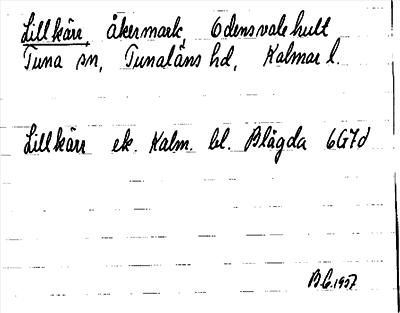 Lillkärr, åkermark, Odensvalehult
Tuna sn, Tunaläns hd, Kalmar l.
Lillkärr ek. Kalm. bl. Blägda 6G7d
B.G. 1957